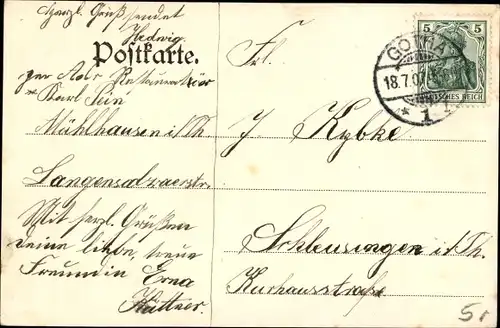 Herzl. Gruß sendet
Hedwig.
Postkarte.
per Adr. Restaurateur
Karl Hein
Mühlhausen i/Th.
Langensalzaerstr.
Mit herzl. Grüßen
Deine liebe, treue
Freundin Erna
Hüttner.
Frl.
J Kybke
Schleusingen i. Th.
Kurhausstraße
5
5
DEUTSCHES REICH
GOTHA
18.7.07
* 1
5